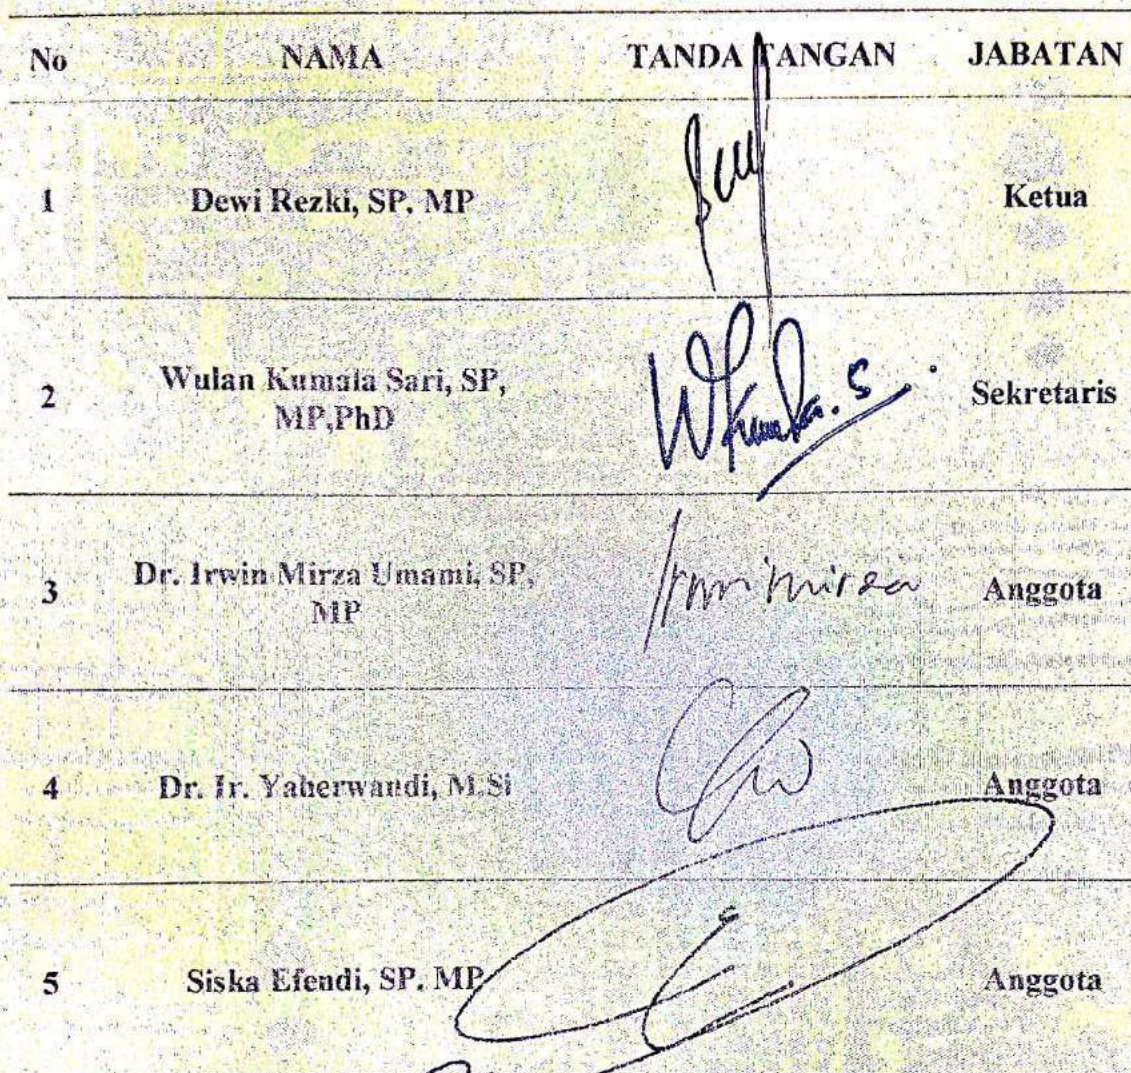 No NAMA TANDA TANGAN JABATAN
1 Dewi Rezki, SP. MP Ketua
2 Wulan Kumala Sari, SP, MP,PhD WKumala. S Sekretaris
3 Dr. Irwin Mirza Umami, SP, MP Anggota
4 Dr. Ir. Yaherwandi, M.Si Anggota
5 Siska Efendi, SP. MP Anggota